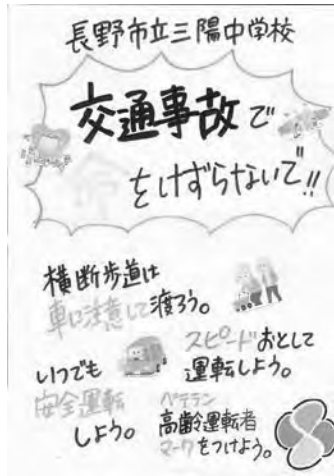 長野市立三陽中学校
交通事故で
命
をけずらないで!!
横断歩道は
車に注意して渡ろう。
スピードおとして
運転しよう。
いつでも
安全運転
しよう。
ベテラン
高齢運転者
マークをつけよう。